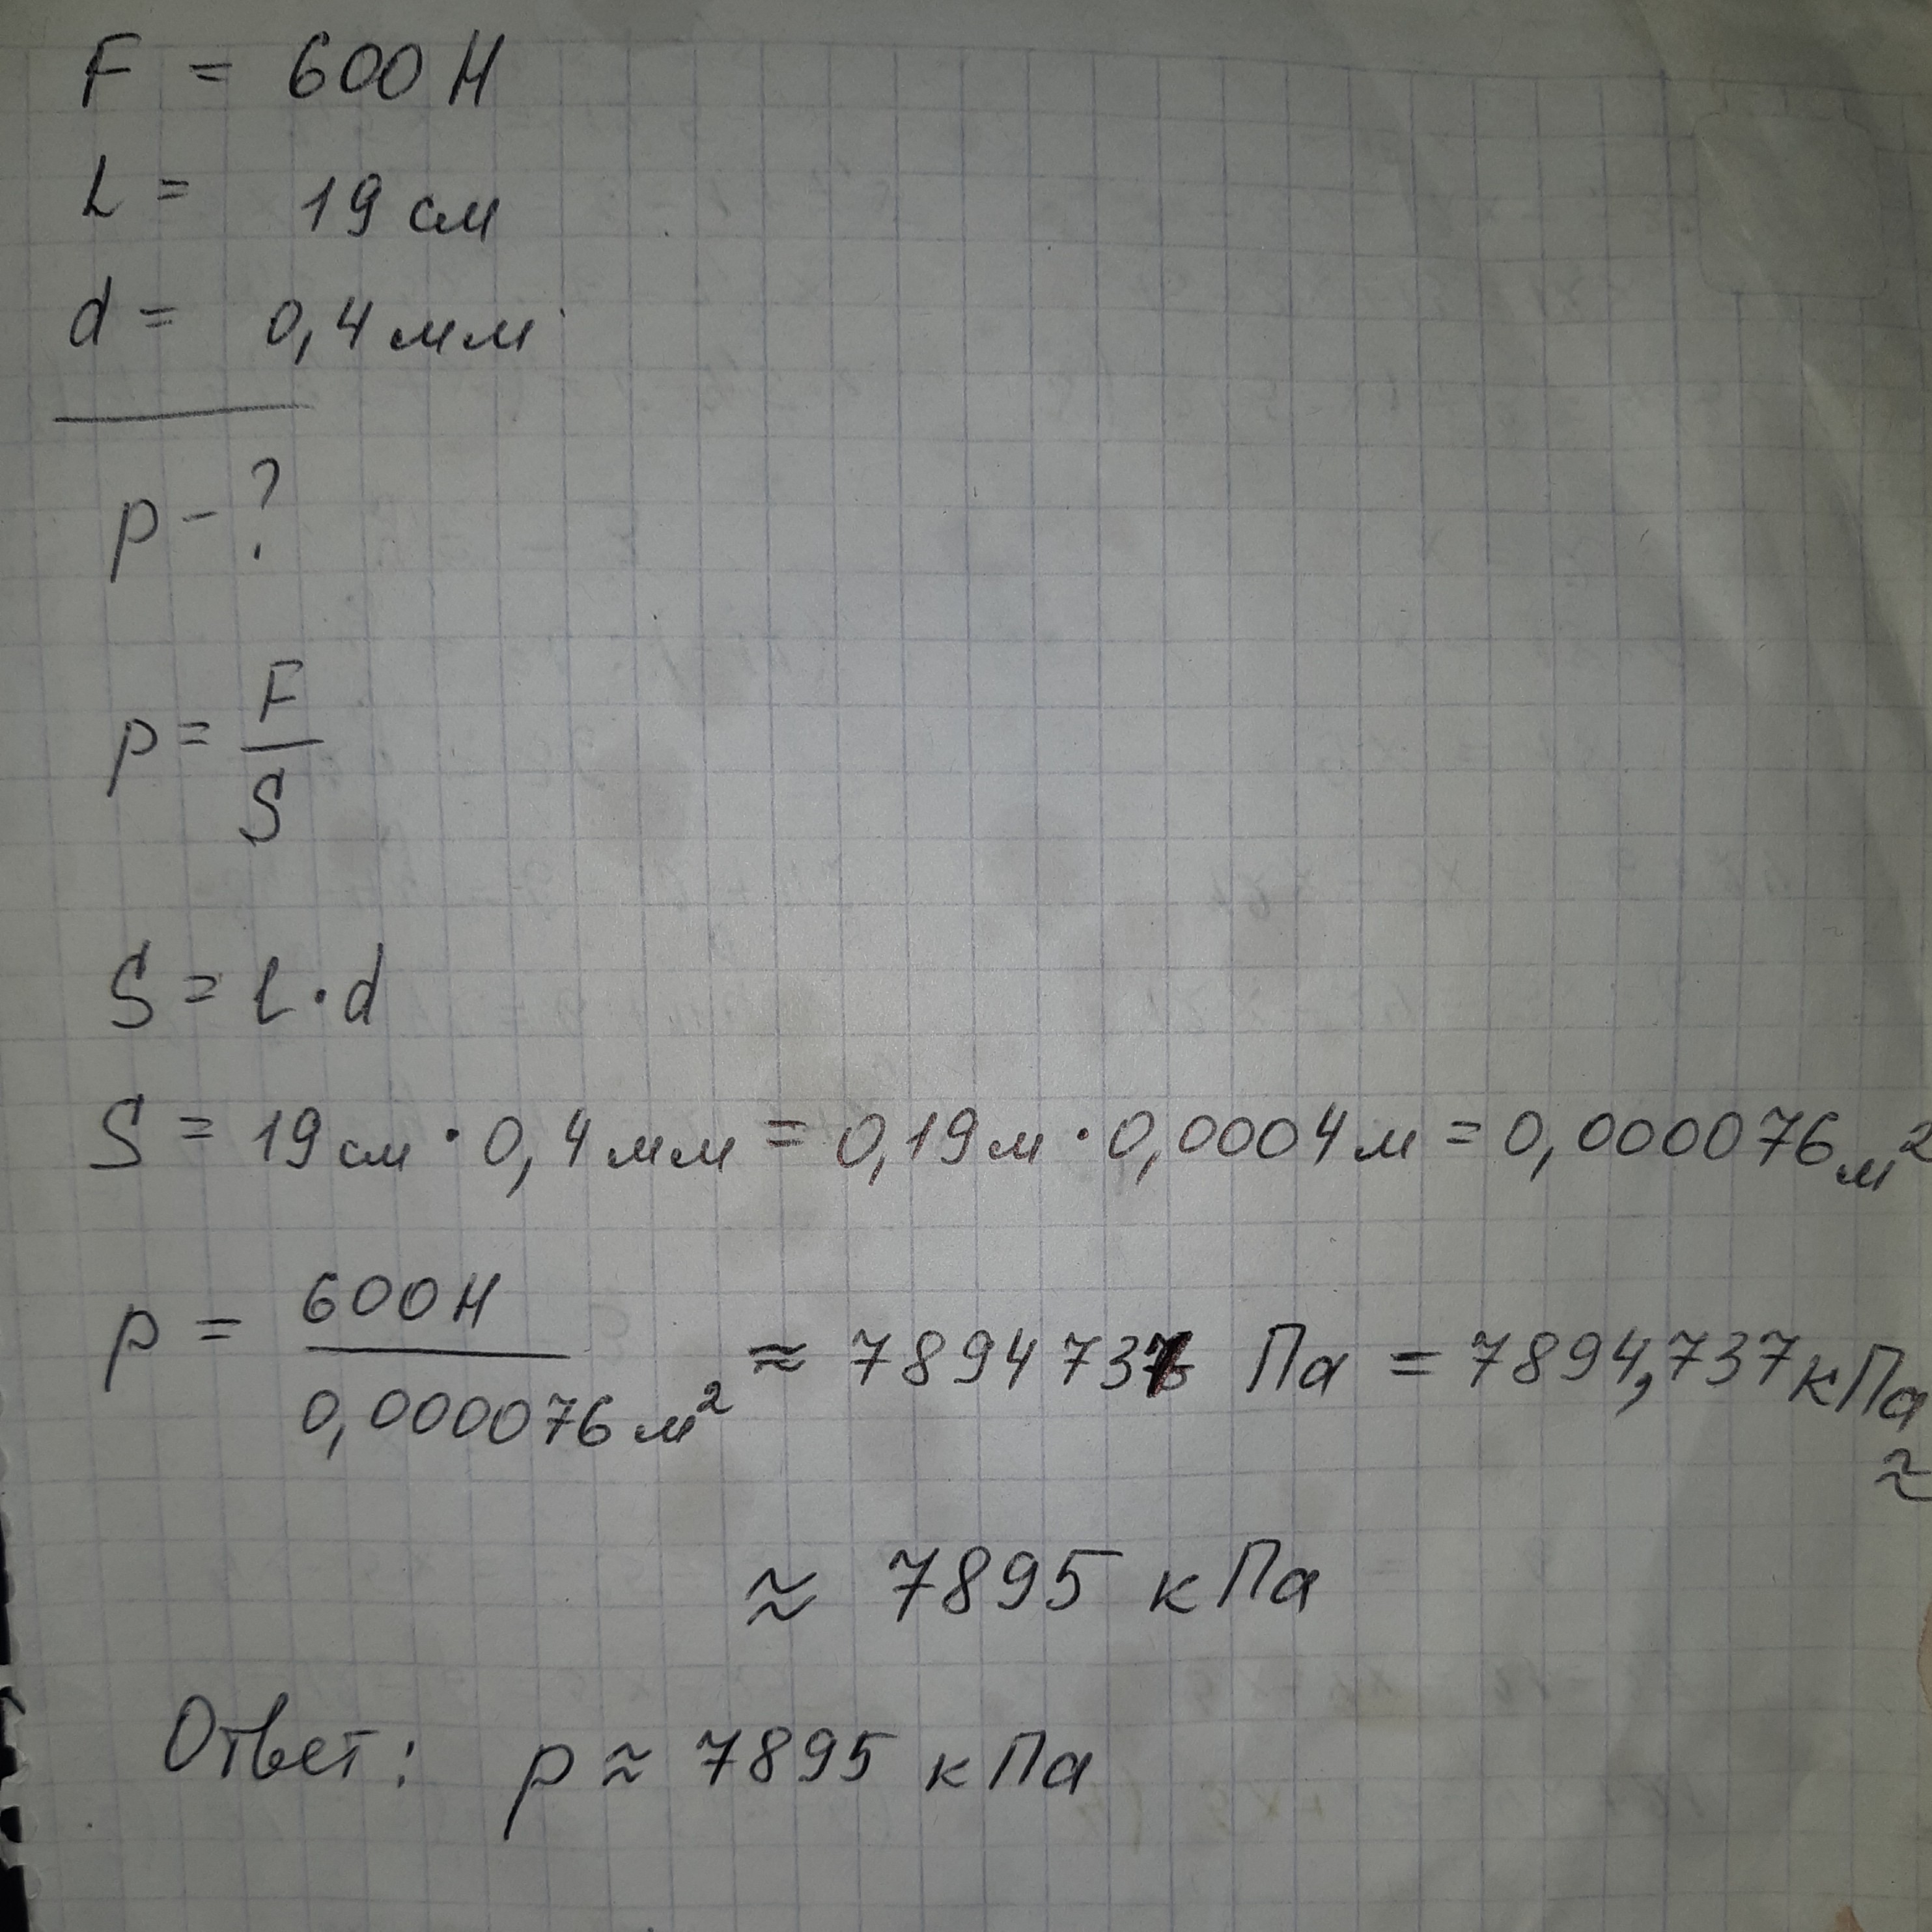 F = 600 Н
L = 19 см
d = 0,4 мм
p - ?
p = F/S
S = L · d
S = 19 см · 0,4 мм = 0,19 м · 0,0004 м = 0,000076 м²
p = 600 Н / 0,000076 м² ≈ 7894737 Па = 7894,737 кПа ≈
≈ 7895 кПа
Ответ: p ≈ 7895 кПа